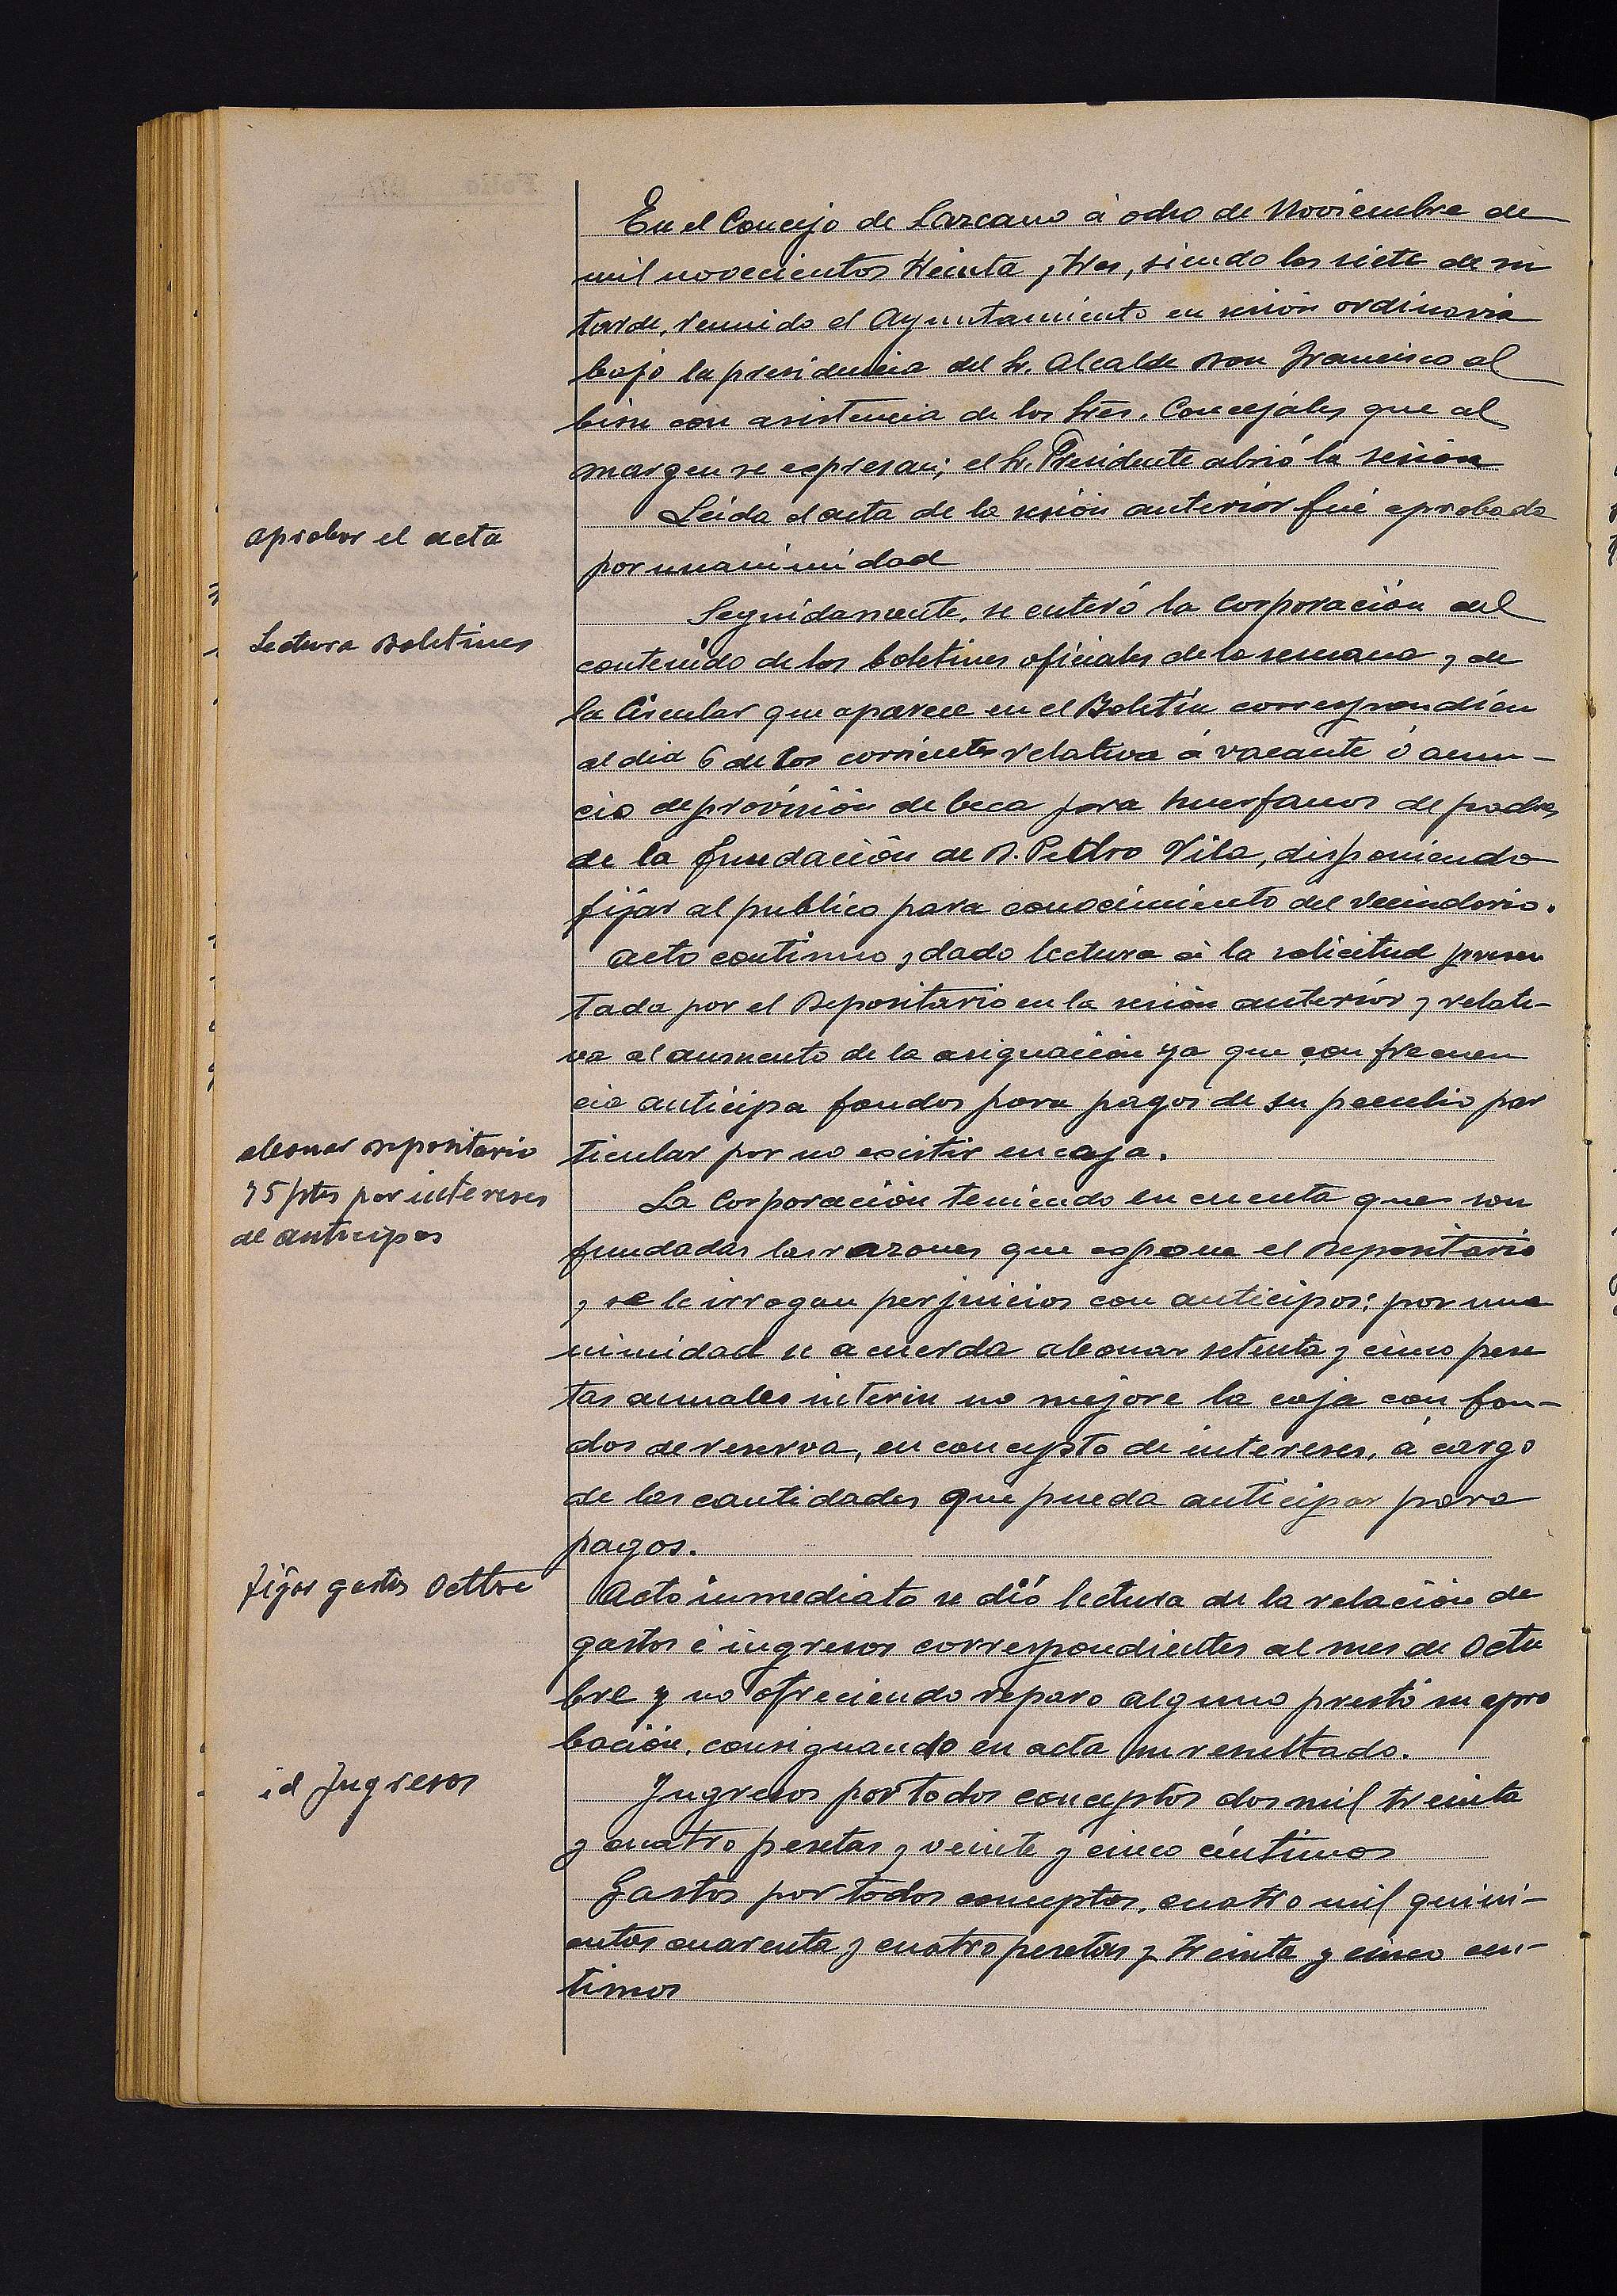 En el Concejo de Lazcano á ocho de Noviembre de
mil novecientos treinta y tres, siendo las siete de su
tarde, reunido el Ayuntamiento en sesión ordinaria
bajo la presidencia del Sr. Alcalde Don Francisco Al
bisu con asistencia de los Sres. Concejales que al
margen se expresan; el Sr. Presidente abrió la sesión
aprobar el acta
Leida el acta de la sesión anterior fué aprobada
por unanimidad
Lectura Boletines
Seguidamente, se enteró la Corporación del
contenido de los boletines oficiales de la semana y de
la Circular que aparece en el Boletín correspondien
al dia 6 de los corrientes relativa á vacante ó anun-
cio de provisión de beca para huerfanos de padres
de la fundación de D. Pedro Vila, disponiendo
fijar al publico para conocimiento del vecindario.
Acto continuo y dado lectura á la solicitud presen
tada por el Depositario en la sesión anterior y relati-
va al aumento de la asignación ya que con frecuen
cia anticipa fondos para pagos de su peculio par
ticular por no existir en caja.
abonar depositario
75 ptas por intereses
de anticipos
La Corporación teniendo en cuenta que son
fundadas las razones que expone el Depositario
y se le irrogan perjuicios con anticipos: por una
nimidad se acuerda abonar setenta y cinco pese
tas anuales interin no mejore la caja con fon-
dos de reserva, en concepto de intereses, á cargo
de las cantidades que pueda anticipar para
pagos.
fijar gastos Octbre
Acto inmediato se dió lectura de la relación de
gastos é ingresos correspondientes al mes de Octu
bre y no ofreciendo reparo alguno prestó su apro
bación, consignando en acta su resultado.
id Ingresos
Ingresos por todos conceptos dos mil treinta
y cuatro pesetas y veinte y cinco céntimos
Gastos por todos conceptos, cuatro mil quini-
entos cuarenta y cuatro pesetas y treinta y cinco cen-
timos